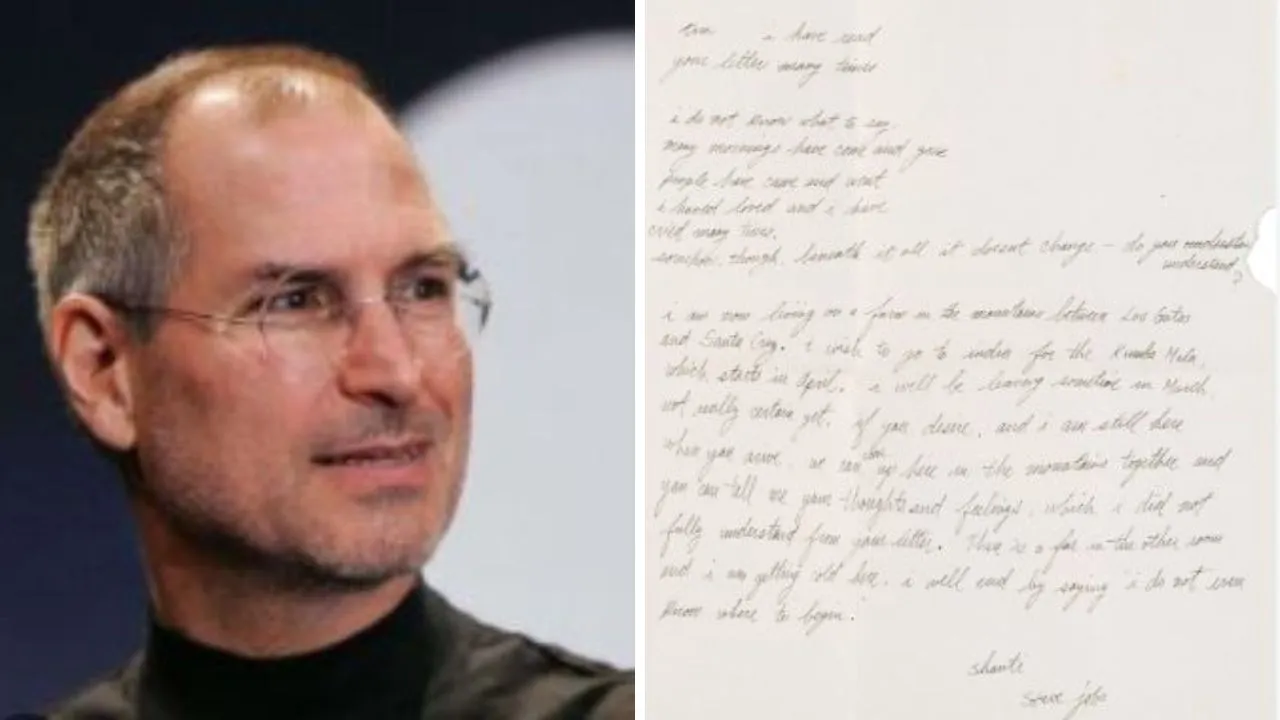 tim i have read
your letter many times
i do not know what to say.
many mornings have come and gone
people have came and went
i haved loved and i have
cried many times.
somehow, though, beneath it all it doesnt change – do you understand
understand?
i am now living on a farm in the mountains between Los Gatos
and Santa Cruz. i wish to go to india for the Kumba Mela,
which starts in April. i will be leaving sometime in March,
not really certain yet. if you desire, and i am still here
when you arive, we can up here in the mountains together and
you can tell me your thoughts and feelings, which i did not
fully understand from your letter. There is a fire in the other room
and i am getting cold here. i will end by saying "i do not even
know where to begin."
shanti
steve jobs